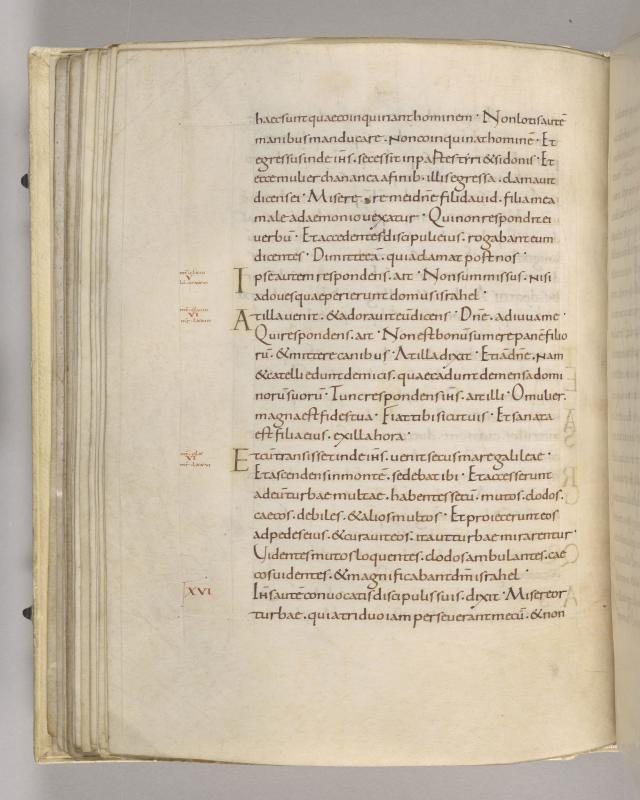 haec sunt quae coinquinant hominem · Non lotis autē
manibus manducare . non coinquinat hominē · Et
egressus inde ihs . secessit in partes tyri & sidonis · Et
ecce mulier chananaea a finib . illis egressa . clamauit
dicens ei · Misere re mei dne fili dauid . filia mea
male a daemonio uexatur · Qui non respondit ei
uerbū · Et accedentes discipuli eius . rogabant eum
dicentes · Dimitte eā . quia clamat post nos
Ipse autem respondens . ait · Non sum missus . nisi
ad oues quae perierunt domus israhel ·
At illa uenit . & adorauit eū dicens · Dne . adiuua me ·
Qui respondens . ait · Non est bonū sumere panē filio
rū . & mittere canibus · At illa dixit · Etiā dne . nam
& catelli edunt de micis . quae cadunt de mensa domi
norū suorū · Tunc respondens ihs . ait illi · O mulier .
magna est fides tua · Fiat tibi sicut uis · Et sanata
est filia eius . ex illa hora ·
Et cū transisset inde ihs . uenit secus mare galileae ·
Et ascendens in montē . sedebat ibi · Et accesserunt
ad eū turbae multae . habentes secū . mutos . clodos .
caecos . debiles . & alios multos · Et proiecerunt eos
ad pedes eius . & curauit eos . ita ut turbae mirarentur ·
Uidentes mutos loquentes . clodos ambulantes . cae
cos uidentes . & magnificabant dm israhel ·
XVI
Ihs autē conuocatis discipulis suis . dixit · Misereor
turbae . quia triduo iam perseuerant mecū . & non